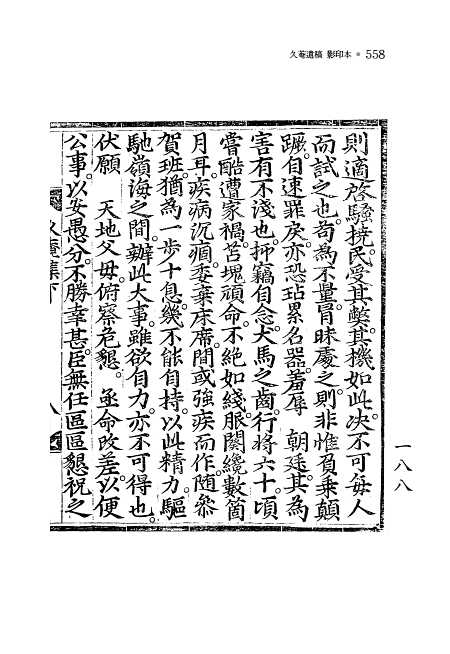 久菴遺稿 影印本 • 558
則適啓騷撓。民受其弊。其機如此。决不可每人
而試之也。苟為不量。冐昧處之。則非惟負乘顛
蹶。自速罪戾。亦恐玷累名器。羞辱 朝廷。其為
害有不淺也。抑竊自念。犬馬之齒。行將六十。頃
嘗酷遭家禍。苫塊頑命。不絶如綫。服闋纔數箇
月耳。疾病沉痼。委棄床席。間或強疾而作。隨叅
賀班。猶為一步十息。幾不能自持。以此精力。驅
馳嶺海之間。辦此大事。雖欲自力。亦不可得也。
伏願 天地父母。俯察危懇。 亟命改差。以便
公事。以安愚分。不勝幸甚。臣無任區區懇祝之
久菴集下 八
一八八